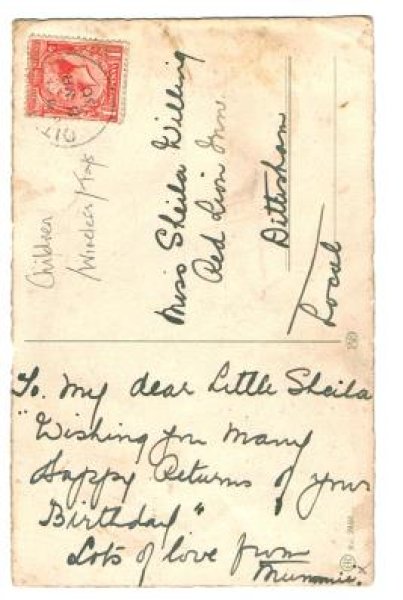 Children
Wireless/Toys
Miss Sheila Willing
Red Lion Inn.
Dittisham
Local
To. My dear Little Sheila
"Wishing you Many
Happy Returns of your
Birthday"
Lots of love from
Mummie. x